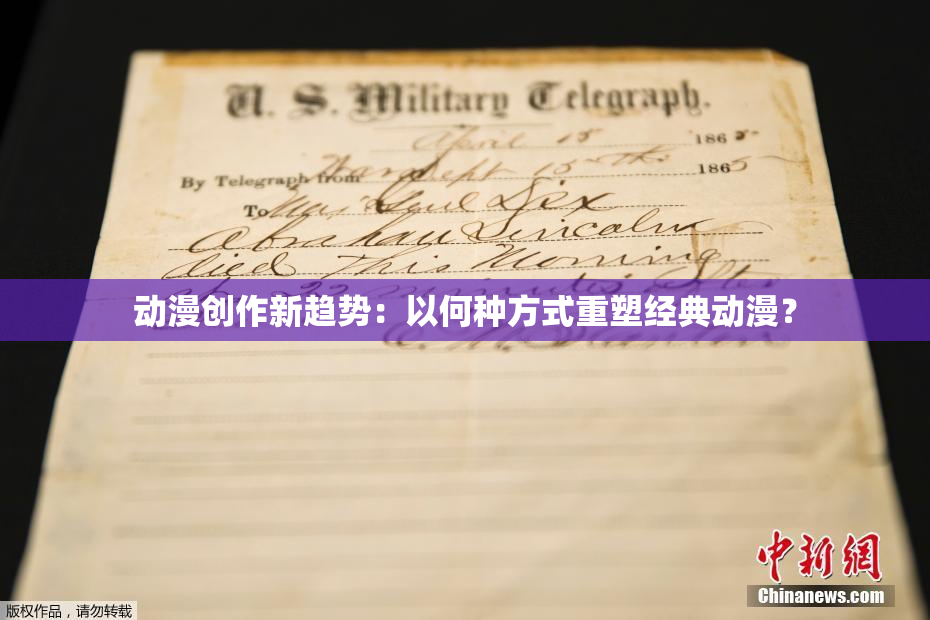 U. S. Military Telegraph.
April 15 1865
By Telegraph from War Dept 15th 1865
To Maj Genl Dix
Abraham Lincoln
died This Morning
at 22 minutes after
动漫创作新趋势：以何种方式重塑经典动漫？
E. M. Stanton
中新网
Chinanews.com
版权作品，请勿转载